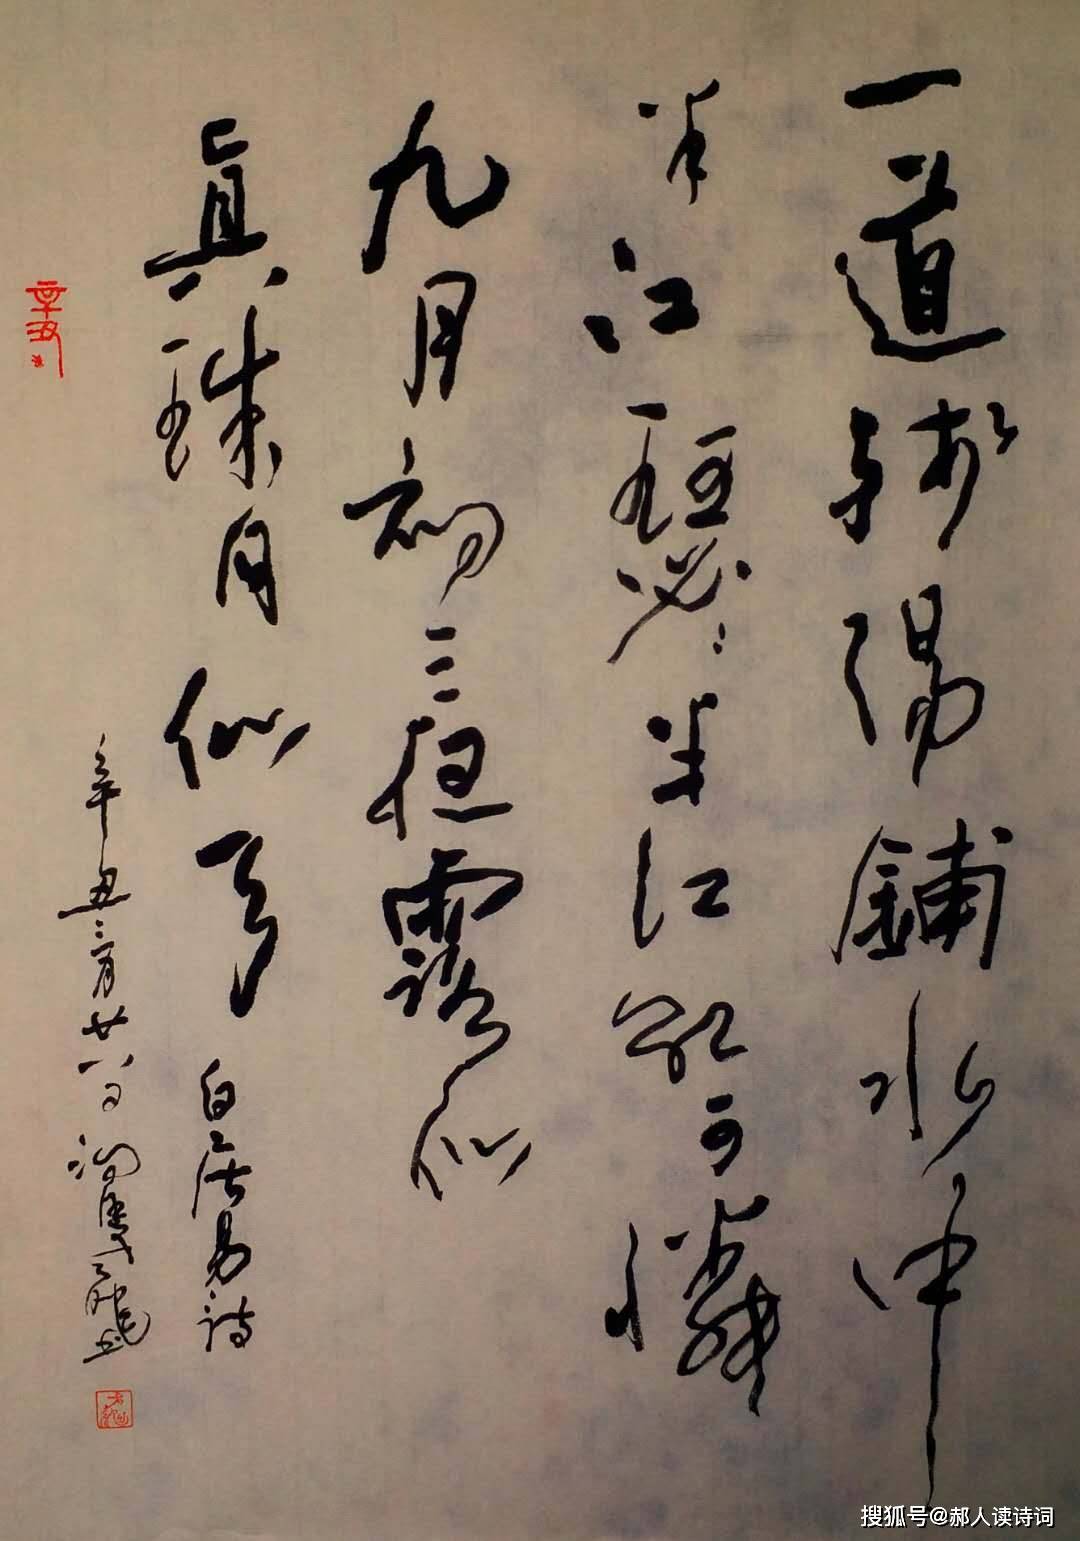 一道殘陽鋪水中
半江瑟瑟半江紅可憐
九月初三夜露似
眞珠月似弓 白居易詩
辛丑三月廿八日
辛丑
搜狐号@郝人读诗词